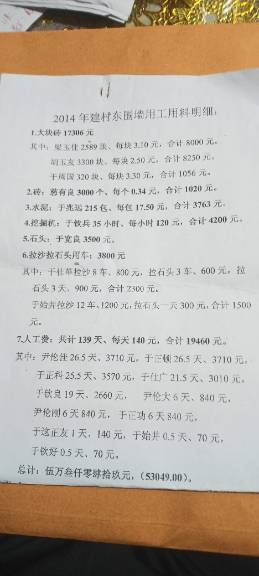 2014年建村东围墙用工用料明细：
1.大块砖 17306 元
其中：梁玉佳 2589 块、每块 3.10 元，合计 8000 元。
胡玉友 3300 块、每块 2.50 元，合计 8250 元。
于成国 320 块、每块 3.30 元，合计 1056 元。
2.砖：慈有良 3000 个、每个 0.34 元，合计 1020 元。
3.水泥：于兆远 215 包、每包 17.50 元，合计 3763 元。
4.挖掘机：于牧兵 35 小时、每小时 120 元，合计 4200 元。
5.石头：于宽良 3500 元。
6.拉沙拉石头用车：3800 元
其中：于仕革拉沙 8 车、800 元，拉石头 3 车、600 元，拉
石头 3 天、900 元，合计 2300 元。
于始井拉沙 12 车、1200 元，拉石头一天 300 元，合计 1500
元。
7.人工费：共计 139 天、每天 140 元，合计 19460 元。
其中：尹伦进 26.5 天、3710 元，于正顿 26.5 天、3710 元，
于正科 25.5 天、3570 元，于仕广 21.5 天、3010 元，
于钦良 19 天、2660 元， 尹伦大 6 天、840 元，
尹伦刚 6 天 840 元，于正功 6 天 840 元，
于这正友 1 天，140 元，于始井 0.5 天、70 元，
于钦好 0.5 天、70 元。
总计：伍万叁仟零肆拾玖元，（53049.00）。